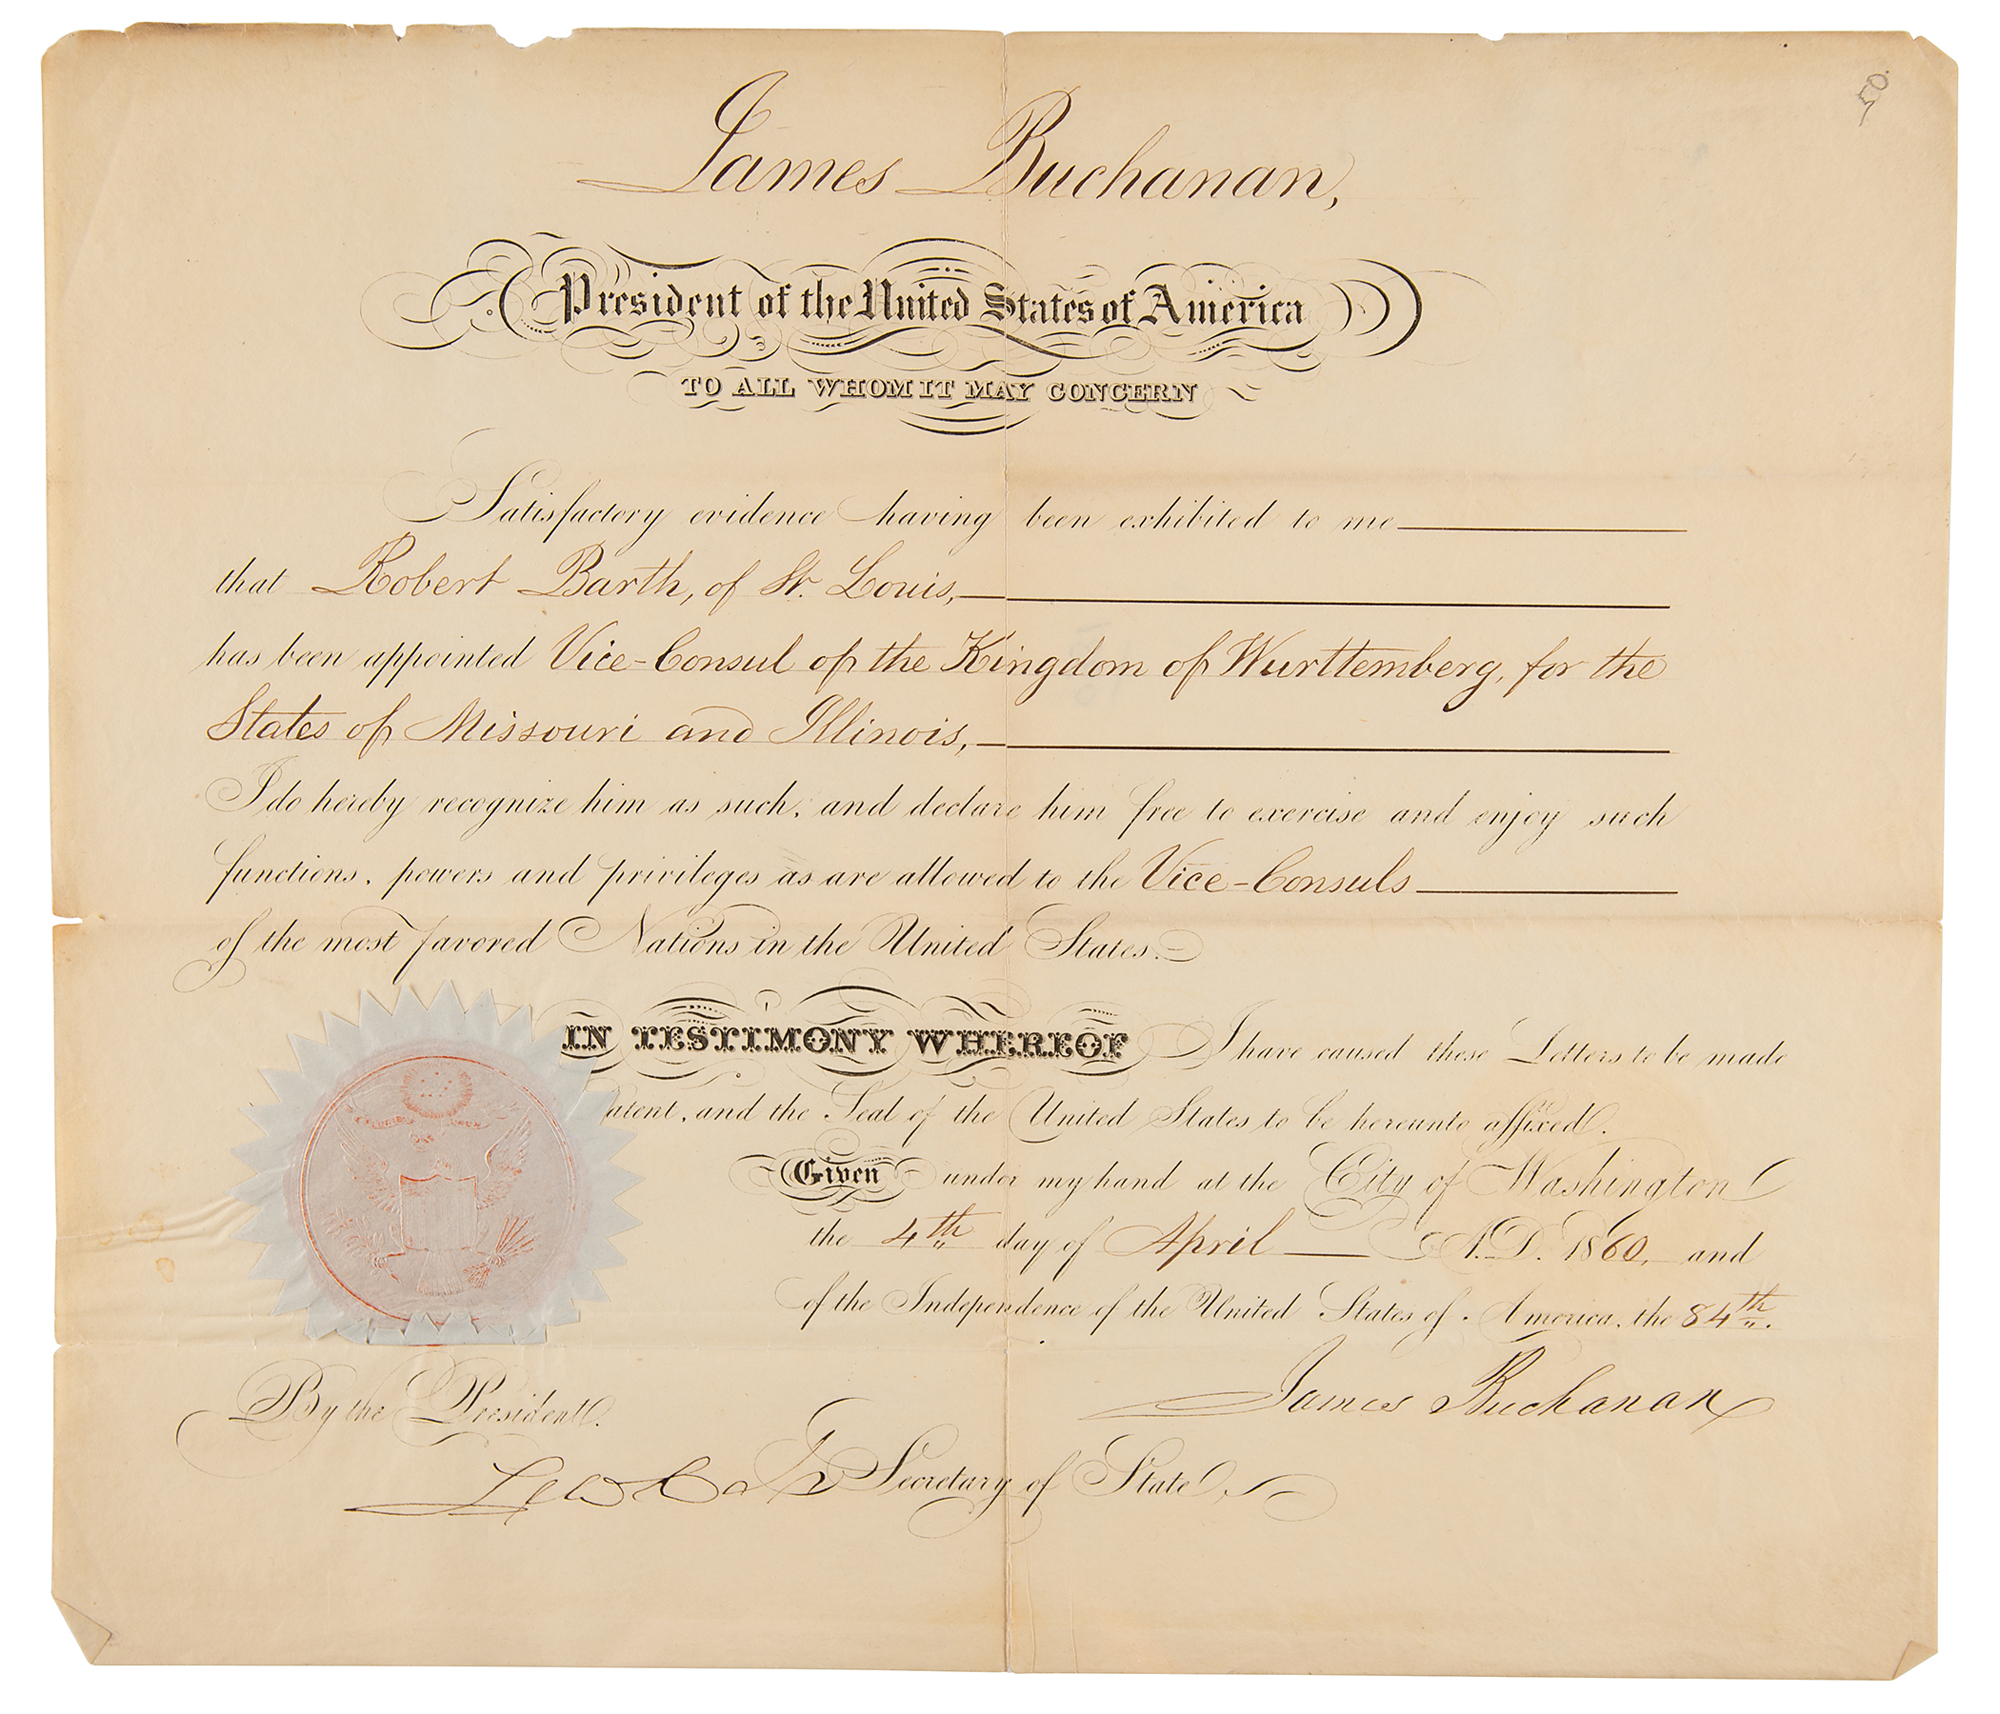 James Buchanan,
President of the United States of America
TO ALL WHOM IT MAY CONCERN
Satisfactory evidence having been exhibited to me
that Robert Barth, of St. Louis,
has been appointed Vice-Consul of the Kingdom of Wurttemberg, for the
States of Missouri and Illinois,
I do hereby recognize him as such, and declare him free to exercise and enjoy such
functions, powers and privileges as are allowed to the Vice-Consuls
of the most favored Nations in the United States.
IN TESTIMONY WHEREOF I have caused these Letters to be made
Patent, and the Seal of the United States to be hereunto affixed.
Given under my hand at the City of Washington
the 4th day of April A.D. 1860, and
of the Independence of the United States of America, the 84th.
James Buchanan
By the President.
Lew Cass Secretary of State.